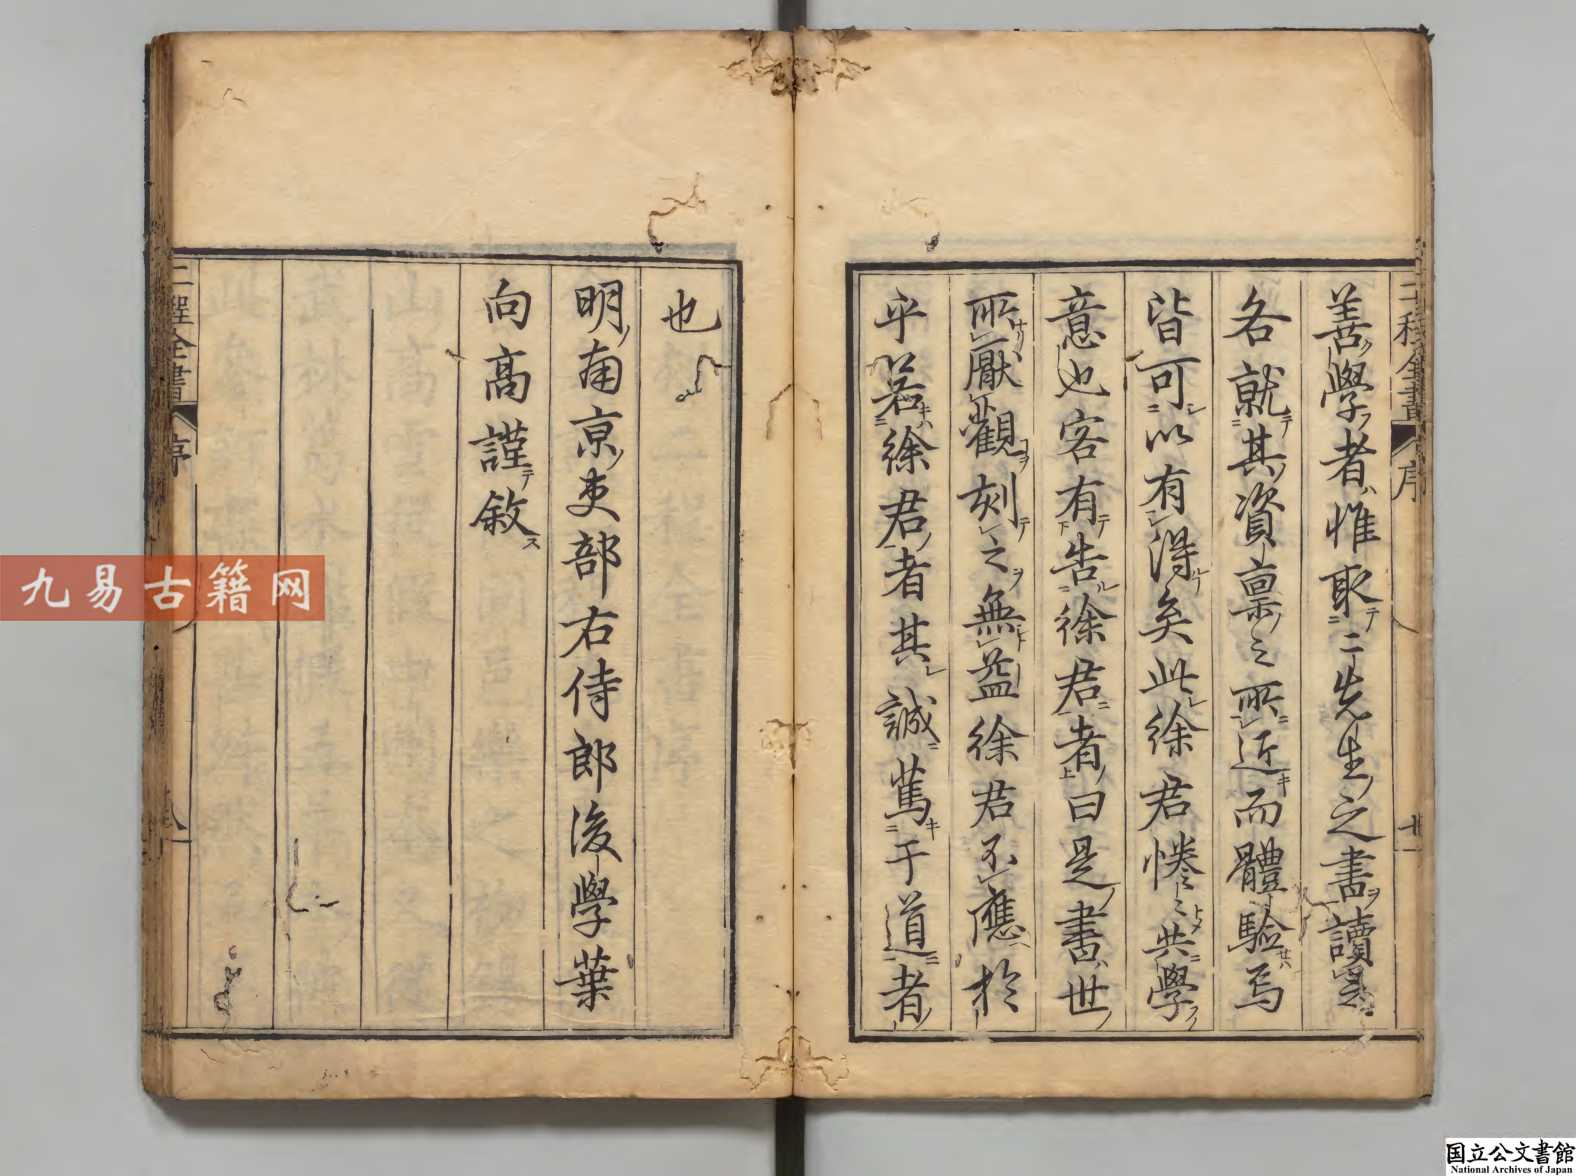 善學者惟取二先生之書讀之
各就其資稟之所近而體驗焉
皆可以有得矣此徐君惓〻共學
意也客有告徐君者曰是書世
所厭觀刻之無益徐君不應於
乎若徐君者其誠篤于道者
二程全書 序
也
明南京吏部右侍郎後學葉
向高謹敘
二程全書 序
九易古籍网
国立公文書館
National Archives of Japan